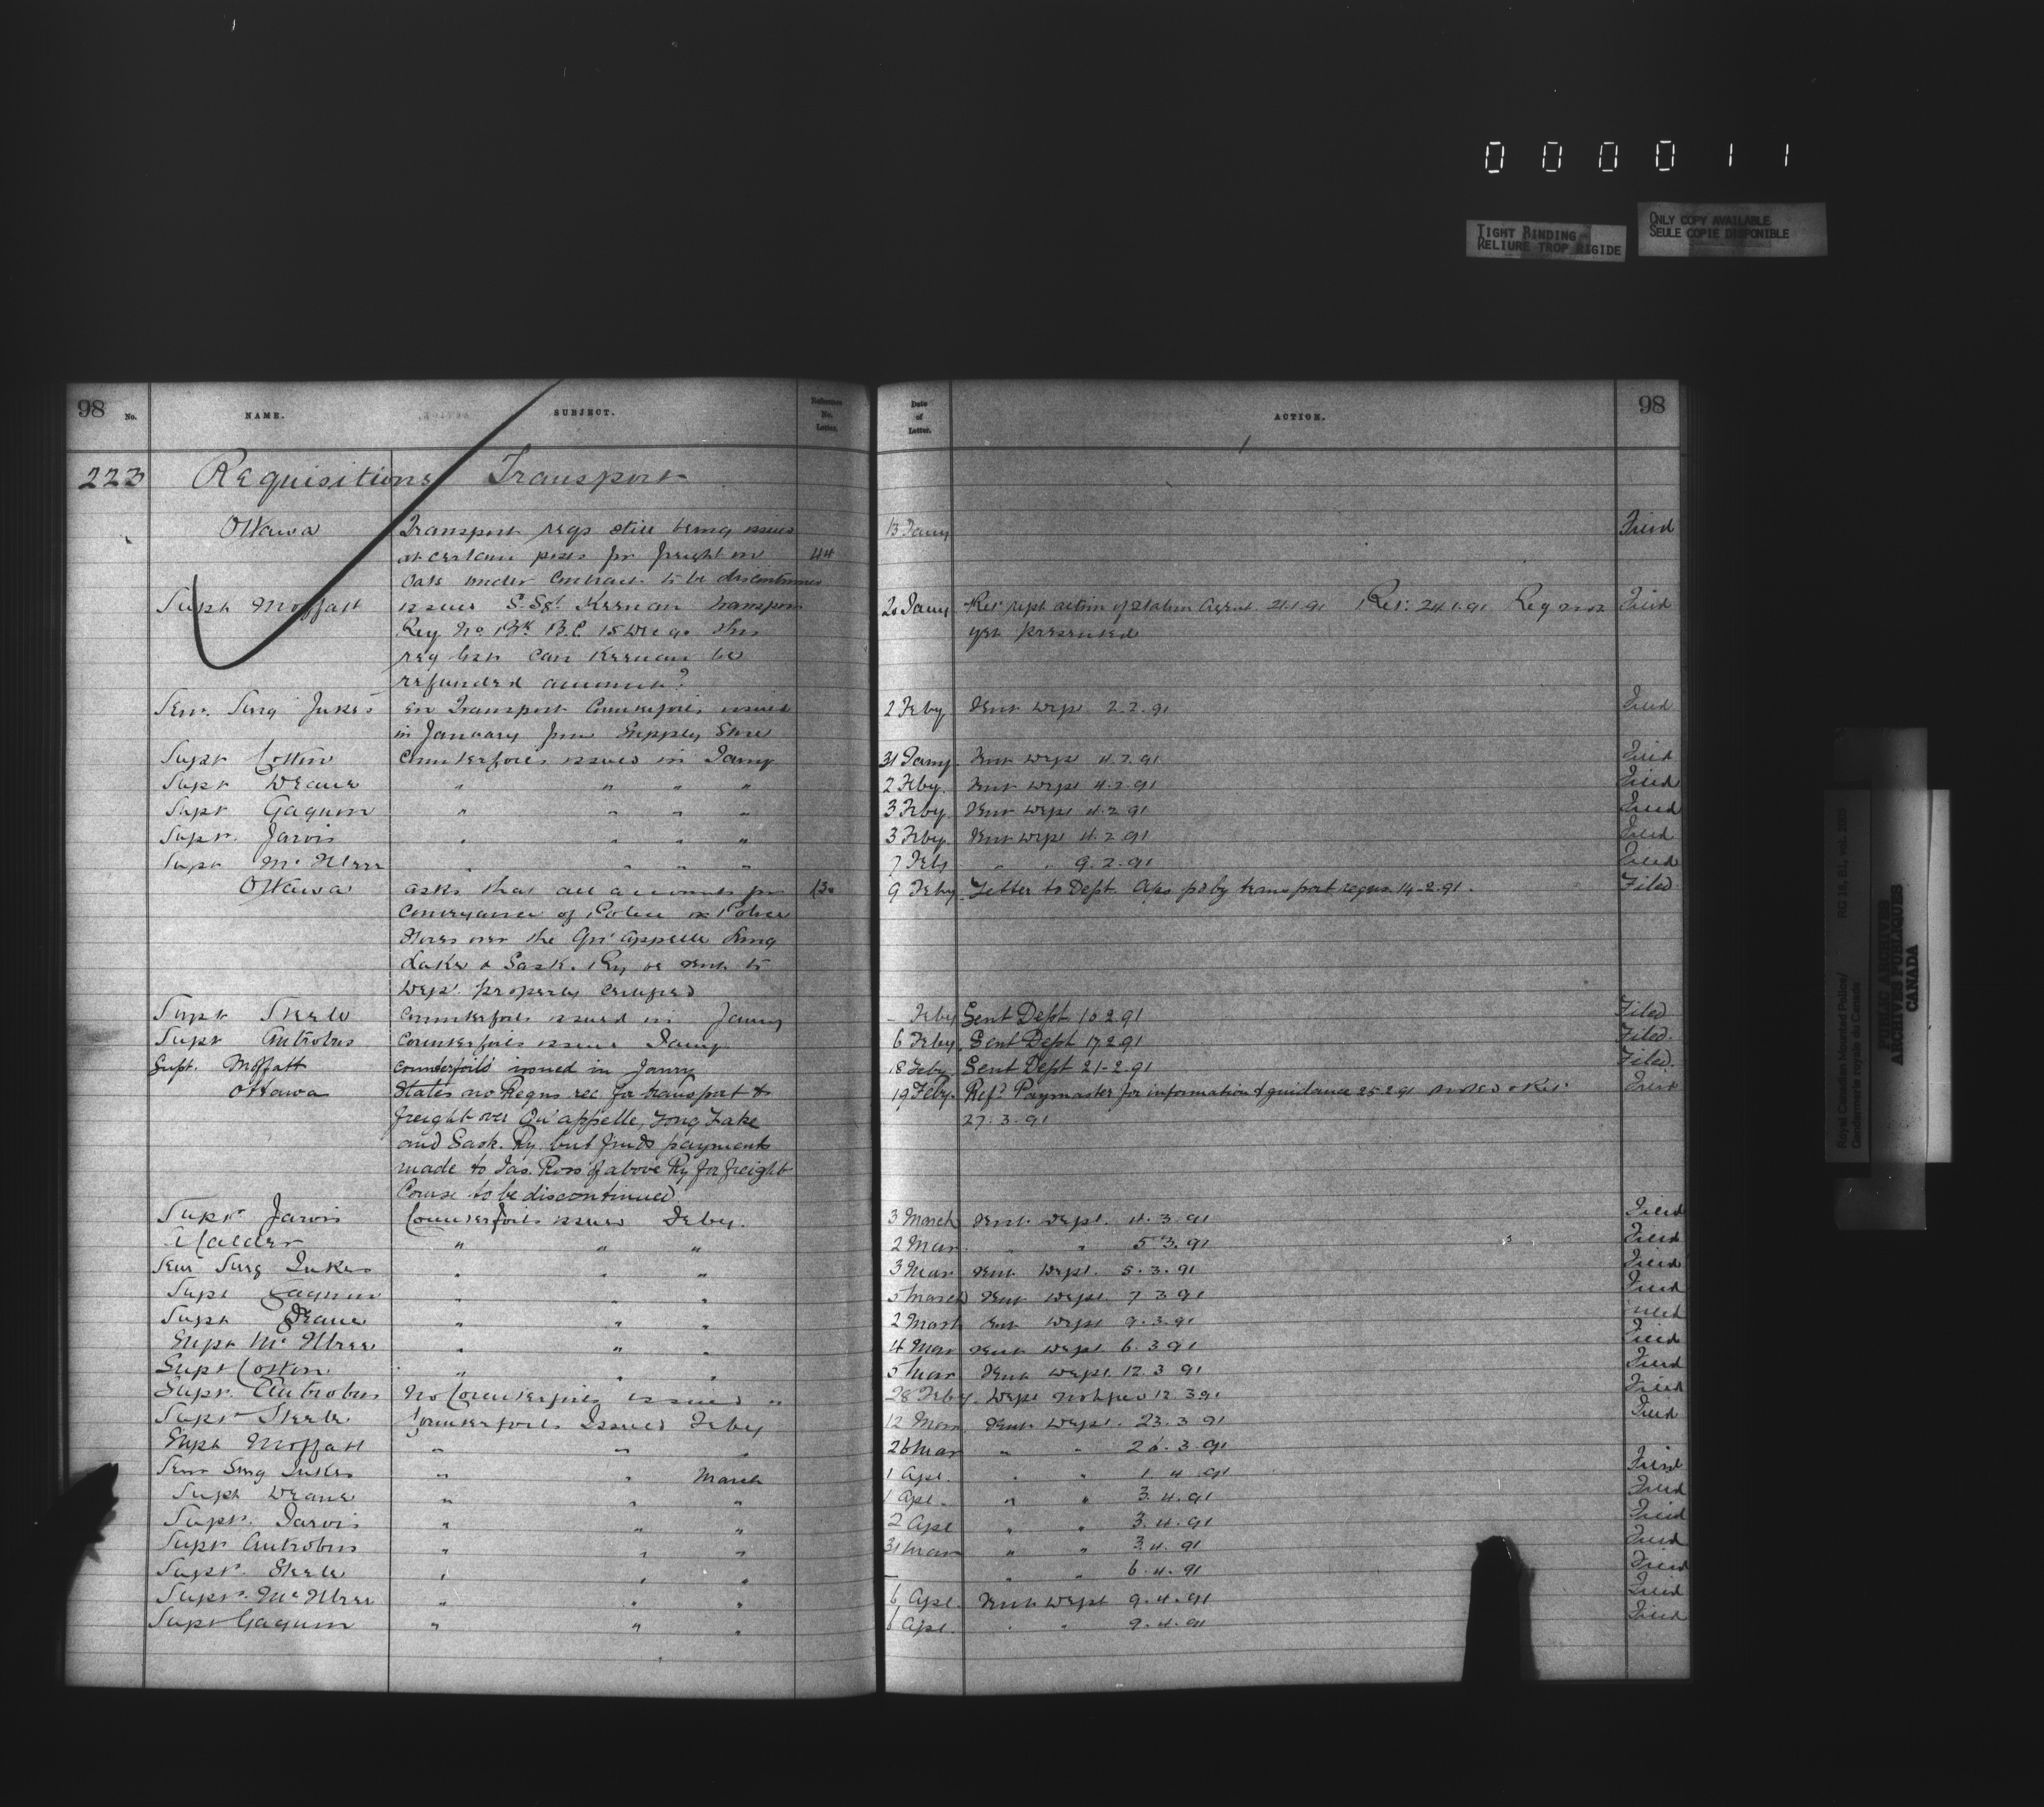 000011
TIGHT BINDING
RELIURE TROP RIGIDE
ONLY COPY AVAILABLE
SEULE COPIE DISPONIBLE
98 No. NAME. SUBJECT. Reference No. Letter. Date of Letter. ACTION. 98
223 Requisitions Transport
Ottawa Transport reqs still being issued 13 Jany Filed
at certain posts for freight on 44
oats under Contract to be discontinued
Supt Moffatt issued S. Sgt. Keenan transport 20 Jany Ref: rept action of station agent 21.1.91 Ret: 24.1.91 Req not Filed
Req No B.C. 15 Dec 90 this yet presented
req lost can Keenan be
refunded amount?
Senr. Surg Jukes en Transport Counterfoils issued 2 Feby Sent Dept 2.2.91 Filed
in January from Supply Store
Supt Cotton Counterfoils issued in Jany 31 Jany. Sent Dept 4.2.91 Filed
Supt Deane " " " " 2 Feby. Sent Dept 4.2.91 Filed
Supt Gagnon " " " " 3 Feby Sent Dept 4.2.91 Filed
Supt. Jarvis " " " " 3 Feby. Sent Dept 4.2.91 Filed
Supt McIllree " " " " 7 Feby " " 9.2.91 Filed
Ottawa asks that all accounts for 130 9 Feby. Letter to Dept. a/cs pd by transport reqns. 14-2.91. Filed
Conveyance of Police or Police
Stores over the Qu'Appelle Long
Lake & Sask. Ry be sent to
Dept. properly certified
Supt Steele Counterfoils issued in Jany – Feby Sent Dept 10.2.91 Filed
Supt Antrobus Counterfoils issued Jany 6 Feby. Sent Dept 17.2.91 Filed.
Supt. Moffatt counterfoils issued in Janry 18 Feby. Sent Dept 21-2.91 Filed
Ottawa States no Reqns rec. for transport & 19 Feby. Refd. Paymaster for information & guidance 25.2.91 Noted & Ret: Filed
freight over Qu'appelle, Long Lake 27.3.91
and Sask. Ry. but finds payments
made to Jas. Ross of above Ry for freight
Course to be discontinued
Supt. Jarvis Counterfoils issued Feby. 3 March Sent Dept. 4.3.91 Filed
Calder " " " 2 Mar " " 5.3.91 Filed
Senr Surg Jukes " " " 3 Mar Sent Dept. 5.3.91 Filed
Supt Gagnon " " " 5 March Sent Dept. 7 3 91 Filed
Supt Deane " " " 2 March Sent Dept 9.3.91 Filed
Supt McIllree " " " 4 Mar Sent Dept 6.3.91 Filed
Supt Cotton " " " 5 Mar Sent Dept. 12.3.91 Filed
Supt. Antrobus No Counterfoils issued " 28 Feby. Dept notified 12.3.91 Filed
Supt Steele Counterfoils Issued Feby 12 Mar Sent Dept. 23.3.91 Filed
Supt Moffatt " " " 26 Mar " " 26.3.91
Senr Surg Jukes " " March 1 Apl. " " 1.4.91 Filed
Supt Deane " " " 1 Apl. " " 3.4.91 Filed
Supt. Jarvis " " " 2 Apl " " 3.4.91 Filed
Supt Antrobus " " " 31 Mar " " 3.4.91 Filed
Supt. Steele " " " – " " 6.4.91 Filed
Supt. McIllree " " " 6 Apl. Sent Dept 9.4.91 Filed
Supt Gagnon " " " 6 Apl. " " 9.4.91 Filed
Royal Canadian Mounted Police/
Gendarmerie royale du Canada
RG 18, B1, vol. 2005
PUBLIC ARCHIVES
ARCHIVES PUBLIQUES
CANADA